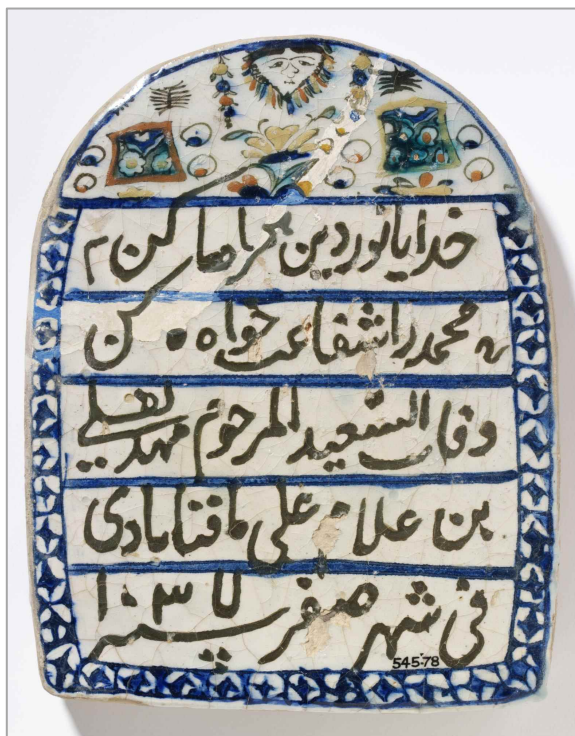 خدایا نور دین همراه ما کن
محمد را شفاعت خواه کن
وفات السعید المرحوم مهدیقلی
بن غلام علی
فی شهر صفر سنه ۱۰۳۷
545-78